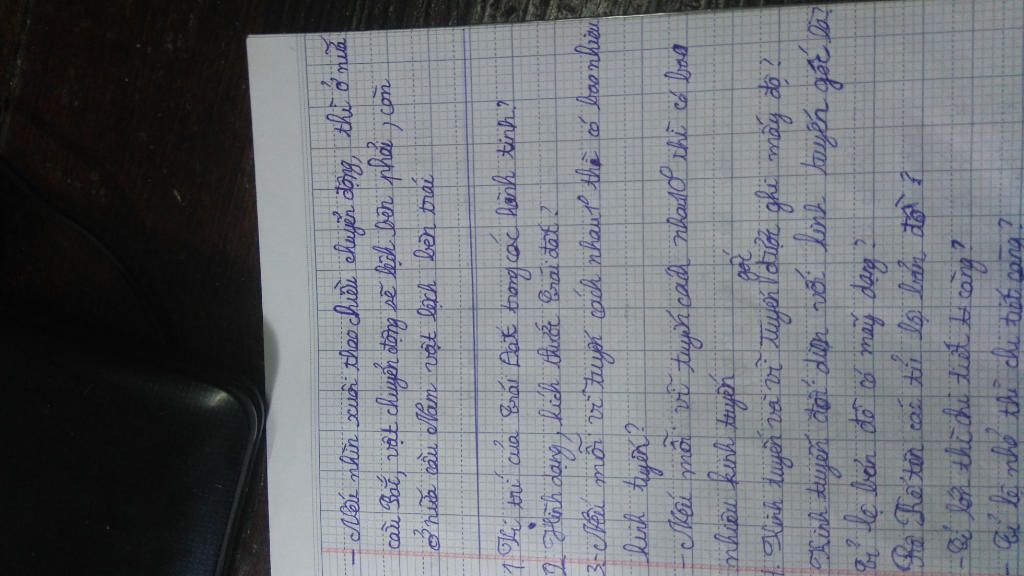 - Nếu nhìn xuôi theo chiều chuyển động, thì ở nửa
cầu Bắc, vật chuyển động sẽ lệch bên phải, còn
ở nửa cầu Nam vật lệch bên trái
1. Vị trí của Trái Đất trong các hành tinh?
2. Hình dạng, kích thước Trái đất?
3. - Nếu mỗi vĩ tuyến cách nhau 1° thì có bao nhiêu
kinh tuyến?
- Nếu mỗi vĩ tuyến cách nhau 10° thì có bao
nhiêu kinh tuyến
4. Kinh tuyến và vĩ tuyến gốc được ghi mấy độ?
Kinh tuyến đối diện với kinh tuyến gốc là?
Tỉ lệ bản đồ có mấy dạng?
Kể tên các tỉ lệ bản đồ?
- Tỉ lệ lớn thì chi tiết càng?
- Tỉ lệ nhỏ thì chi tiết càng?